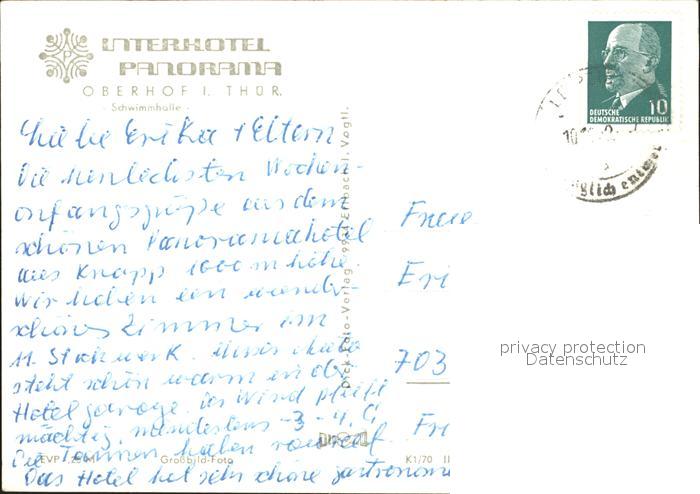 INTERHOTEL
PANORAMA
OBERHOF I. THÜR.
- Schwimmhalle -
DEUTSCHE
DEMOKRATISCHE REPUBLIK
10
Liebe Erika + Eltern
Die herzlichsten Wochen-
anfangsgrüße aus dem
schönen Panoramahotel
aus knapp 1000 m Höhe.
Wir haben ein wunder-
schönes Zimmer im
11. Stockwerk. Unser Auto
steht schön warm in der
Hotelgarage. Der Wind pfeift
mächtig, mindestens -3 -4 C
Die Tannen haben
Das Hotel hat sehr schöne gastronom
Frau
Eri
703
Fr
Dick-Foto-Verlag, 9934 Erlbach i. Vogtl.
Großbild-Foto
K1/70 II
privacy protection
Datenschutz